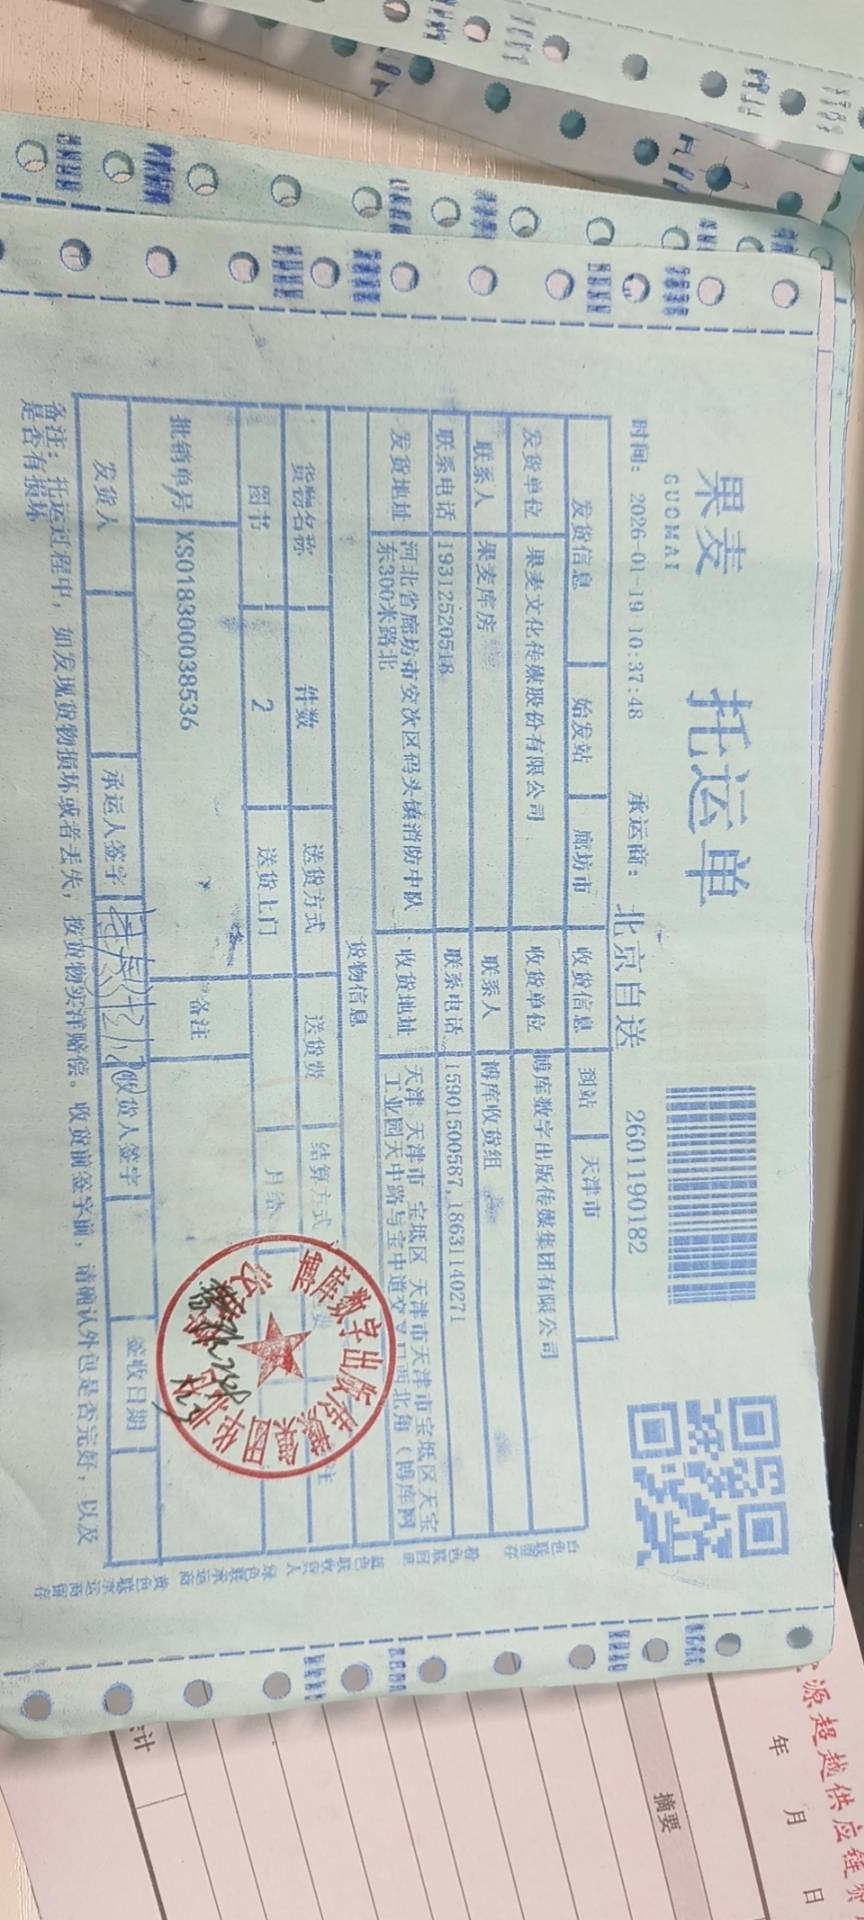 果麦
GUOMAI
托运单
时间: 2026-01-19 10:37:48 承运商: 北京自送 2601190182
发货信息 始发站 廊坊市 收货信息 到站 天津市
发货单位 果麦文化传媒股份有限公司 收货单位 博库数字出版传媒集团有限公司
联系人 果麦库房 联系人 博库收货组
联系电话 19312520518 联系电话 15901500587,18631140271
发货地址 河北省廊坊市安次区码头镇消防中队东300米路北 收货地址 天津 天津市 宝坻区 天津市天津市宝坻区天宝工业园天中路与宝中道交叉口西北角（博库网
货物信息
货物名称 件数 送货方式 送货费 结算方式 注
图书 2 送货上门 月结
批销单号 XS018300038536 备注
发货人 承运人签字 收货人签字 签收日期
备注: 托运过程中, 如发现货物损坏或者丢失, 按货物实洋赔偿。收货前签字前, 请确认外包是否完好, 以及
是否有损坏
白色联留存
粉色联回单
蓝色联收货人
绿色联承运商
黄色联承运商留存
博库数字出版传媒集团
源超越供应链
年 月 日
摘要
计